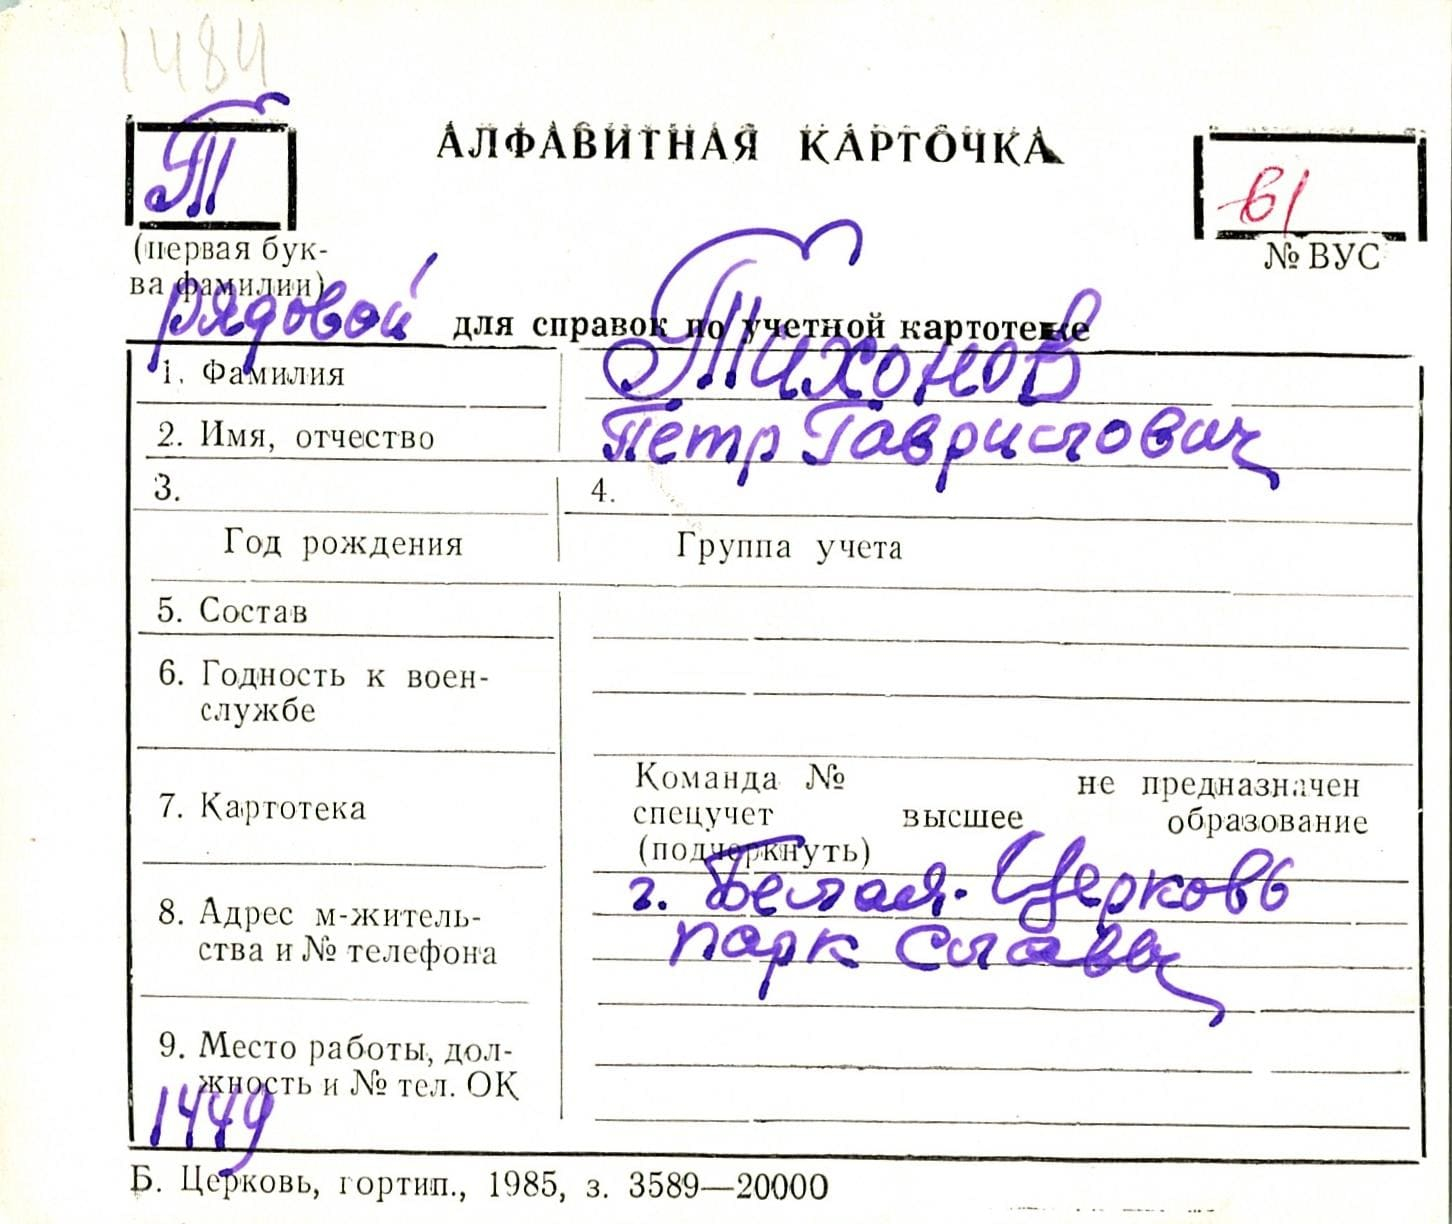 1484
Т
АЛФАВИТНАЯ КАРТОЧКА
в1
(первая бук-
ва фамилии)
№ ВУС
рядовой
для справок по учетной картотеке
1. Фамилия
Тихонов
2. Имя, отчество
Петр Гаврилович
3.
4.
Год рождения
Группа учета
5. Состав
6. Годность к воен-
службе
7. Картотека
Команда № не предназначен
спецучет высшее образование
(подчеркнуть)
8. Адрес м-житель-
ства и № телефона
г. Белая-Церковь
парк Славы
9. Место работы, дол-
жность и № тел. ОК
1449
Б. Церковь, гортип., 1985, з. 3589—20000